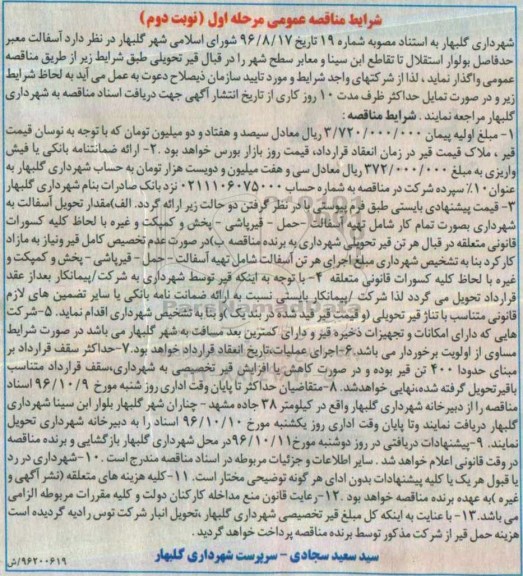 شرایط مناقصه عمومی مرحله اول (نوبت دوم)
شهرداری گلبهار به استناد مصوبه شماره ۱۹ تاریخ ۹۶/۸/۱۷ شورای اسلامی شهر گلبهار در نظر دارد آسفالت معبر
حدفاصل بولوار استقلال تا تقاطع ابن سینا و معابر سطح شهر را در قبال قیر تحویلی طبق شرایط زیر از طریق مناقصه
عمومی واگذار نماید ، لذا از شرکتهای واجد شرایط و مورد تایید سازمان ذیصلاح دعوت به عمل می آید به لحاظ شرایط
زیر و در صورت تمایل حداکثر ظرف مدت ۱۰ روز کاری از تاریخ انتشار آگهی جهت دریافت اسناد مناقصه به شهرداری
گلبهار مراجعه نمایند . شرایط مناقصه :
۱- مبلغ اولیه پیمان ۳/۷۲۰/۰۰۰/۰۰۰ ریال معادل سیصد و هفتاد و دو میلیون تومان که با توجه به نوسان قیمت
قیر ، ملاک قیمت قیر در زمان انعقاد قرارداد، قیمت روز بازار بورس خواهد بود .۲- ارائه ضمانتنامه بانکی یا فیش
واریزی به مبلغ ۳۷۲/۰۰۰/۰۰۰ ریال معادل سی و هفت میلیون و دویست هزار تومان به حساب شهرداری گلبهار به
عنوان ۱۰٪ سپرده شرکت در مناقصه به شماره حساب ۰۲۱۱۱۰۶۰۷۵۰۰۰ نزد بانک صادرات بنام شهرداری گلبهار
۳- قیمت پیشنهادی بایستی طبق فرم توسیقی با در نظر گرفتن دو حالت زیر ارائه گردد. الف)مقدار تحویل آسفالت به
شهرداری بصورت تمام کار شامل تهیه آسفالت - حمل - قیرپاشی - پخش و کمپکت و غیره با لحاظ کلیه کسورات
قانونی متعلقه در قبال هر تن قیر تحویلی شهرداری به برنده مناقصه ب)در صورت عدم تخصیص کامل قیر ونیاز به مازاد
کارکرد بنا به تشخیص شهرداری مبلغ اجرای هر تن آسفالت شامل تهیه آسفالت - حمل - قیرپاشی - پخش و کمپکت و
غیره با لحاظ کلیه کسورات قانونی متعلقه ۴- با توجه به اینکه قیر توسط شهرداری به شرکت/پیمانکار بعداز عقد
قرارداد تحویل می گردد لذا شرکت /پیمانکار بایستی نسبت به ارائه ضمانت نامه بانکی یا سایر تضمین های لازم
قانونی متناسب با تناژ قیر تحویلی (وقیمت قیر قید شده در بند یک ) بنا به تشخیص شهرداری اقدام نمایند. ۵-شرکت
هایی که دارای امکانات و تجهیزات ذخیره قیر و دارای کمترین بعد مسافت به شهر گلبهار می باشد در صورت شرایط
مساوی از اولویت برخوردار می باشد.۶-اجرای عملیات،تاریخ انعقاد قرارداد خواهد بود.۷-حداکثر سقف قرارداد بر
مبنای حدودا ۴۰۰ تن قیر بوده و در صورت کاهش یا افزایش قیر تخصیصی به شهرداری،سقف قرارداد متناسب
باقیر تحویل گرفته شده،نهایی خواهدشد. ۸-متقاضیان حداکثر تا پایان وقت اداری روز شنبه مورخ ۹۶/۱۰/۹ اسناد
مناقصه را از دبیرخانه شهرداری گلبهار واقع در کیلومتر ۳۸ جاده مشهد - چناران شهر گلبهار بلوار ابن سینا شهرداری
گلبهار دریافت نمایند وتا پایان وقت اداری روز یکشنبه مورخ ۹۶/۱۰/۱۰ اسناد را به دبیرخانه شهرداری تحویل
نمایند. ۹-پیشنهادات دریافتی در روز دوشنبه مورخ ۹۶/۱۰/۱۱در محل شهرداری گلبهار بازگشایی و برنده مناقصه
در وقت قانونی اعلام خواهد شد . سایر اطلاعات و جزئیات مربوطه در اسناد مناقصه مندرج است .۱۰-شهرداری در رد
یا قبول هر یک یا کلیه پیشنهادات بدون ادای هر گونه توضیحی مختار است. ۱۱-کلیه هزینه های متعلقه (نشر آگهی و
غیره )به عهده برنده مناقصه خواهد بود .۱۲-رعایت قانون منع مداخله کارکنان دولت و کلیه مقررات مربوطه الزامی
می باشد.۱۳-با عنایت به اینکه کل مبلغ قیر تخصیصی شهرداری گلبهار،تحویل انبار شرکت توس رادیه گردیده است
هزینه حمل قیر از شرکت مذکور توسط برنده مناقصه پرداخت خواهد گردید.
سید سعید سجادی - سرپرست شهرداری گلبهار
۹۶۲۰۰۶۱۹/ش